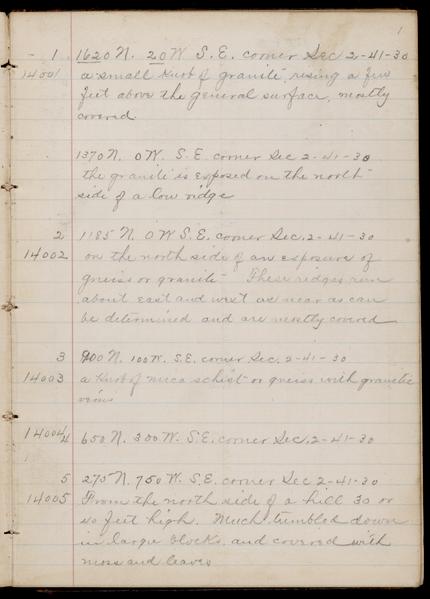 1
- 1 1620 N. 20 W S.E. corner Sec 2-41-30
14001 a small knob of granite, rising a few
feet above the general surface, mostly
covered
1370 N. 0 W. S.E. corner Sec 2-41-30
the granite is exposed on the north
side of a low ridge
2 1185 N. 0 W S.E. corner Sec. 2-41-30
14002 on the north side of an exposure of
gneiss or granite - These ridges run
about east and west as near as can
be determined and are mostly covered
3 900 N. 100 W. S.E. corner Sec. 2-41-30
14003 a knob of mica schist or gneiss with granitic
veins
14004 4 650 N. 300 W. S.E. corner Sec. 2-41-30
5 275 N. 750 W. S.E. corner Sec 2-41-30
14005 From the north side of a hill 30 or
40 feet high. Much tumbled down
in large blocks, and covered with
moss and leaves